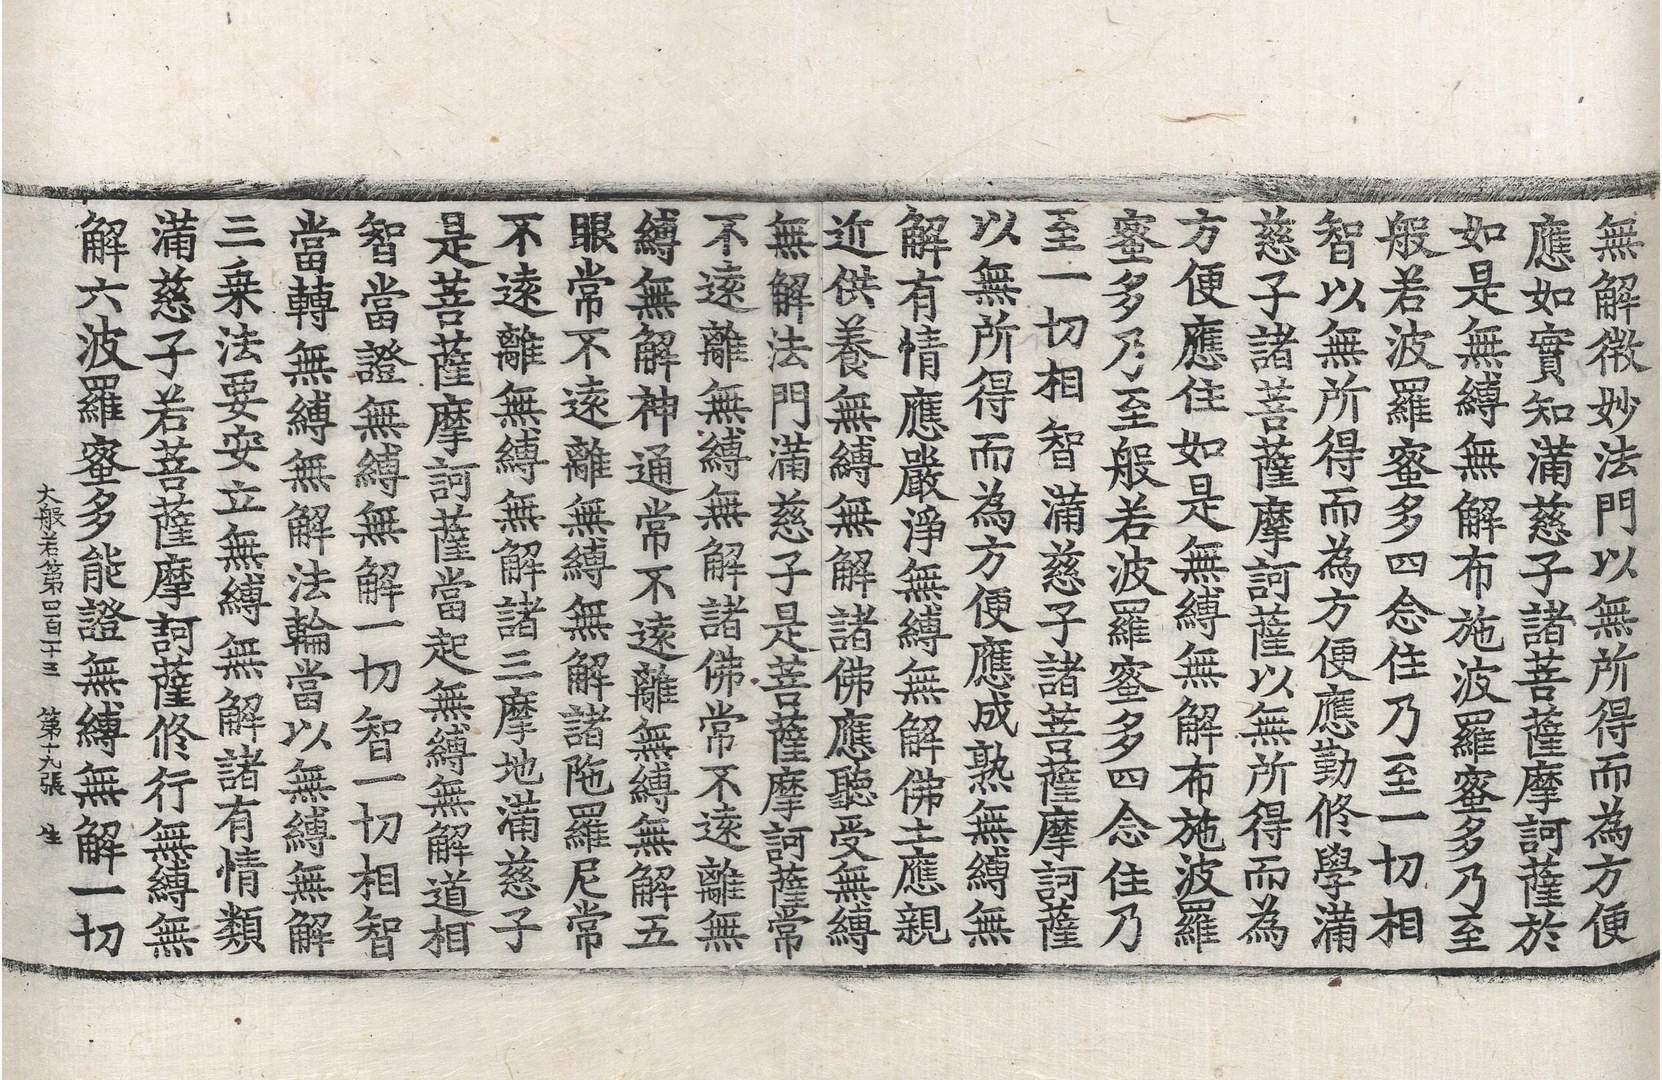 無解微妙法門以無所得而為方便
應如實知滿慈子諸菩薩摩訶薩於
如是無縛無解布施波羅蜜多乃至
般若波羅蜜多四念住乃至一切相
智以無所得而為方便應勤修學滿
慈子諸菩薩摩訶薩以無所得而為
方便應住如是無縛無解布施波羅
蜜多乃至般若波羅蜜多四念住乃
至一切相智滿慈子諸菩薩摩訶薩
以無所得而為方便應成熟無縛無
解有情應嚴淨無縛無解佛土應親
近供養無縛無解諸佛應聽受無縛
無解法門滿慈子是菩薩摩訶薩常
不遠離無縛無解諸佛常不遠離無
縛無解神通常不遠離無縛無解五
眼常不遠離無縛無解諸陁羅尼常
不遠離無縛無解諸三摩地滿慈子
是菩薩摩訶薩當起無縛無解道相
智當證無縛無解一切智一切相智
當轉無縛無解法輪當以無縛無解
三乗法要安立無縛無解諸有情類
滿慈子若菩薩摩訶薩修行無縛無
解六波羅蜜多能證無縛無解一切
大般若第四百一十三 第十九張 生